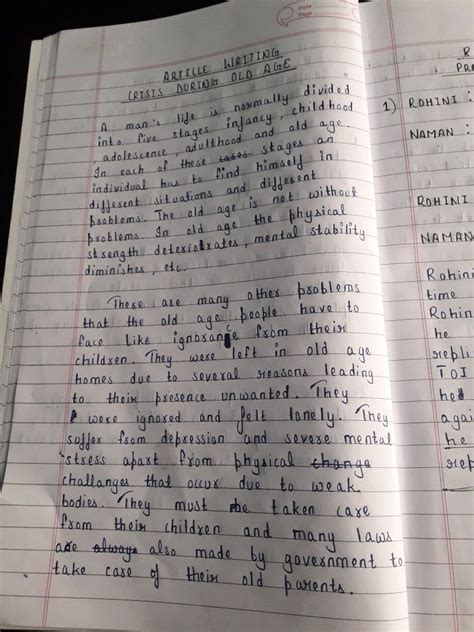 Date
Page
ARTICLE WRITING
CRISIS DURING OLD AGE
A man's life is normally divided
into five stages infancy, childhood
, adolescence, adulthood and old age.
In each of these cases stages an
individual has to find himself in
different situations and different
problems. The old age is not without
problems. In old age the physical
strength deteriotrates, mental stability
diminishes, etc.
There are many other problems
that the old age people have to
face like ignorance from their
children. They were left in old age
homes due to several reasons leading
to their presence unwanted. They
were ignored and felt lonely. They
suffer from depression and severe mental
stress apart from physical change
challanges that occur due to weak
bodies. They must be taken care
from their children and many laws
are always also made by government to
take care of their old parents.
R
PRA
1) ROHINI :
NAMAN :
ROHINI
NAMAN
Rohin
time
Rohin
he
repli
TOI
he
agai
he
rep